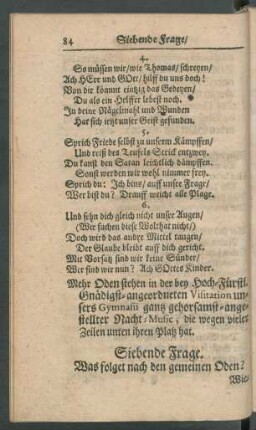 84 Siebende Frage/
4.
So müssen wir/ wie Thomas/ schreyen/
Ach HErr und GOtt/ hilff du uns doch!
Von dir kömmt eintzig das Gedeyen/
Du als ein Helffer lebest noch.
In deine Nägelmahl und Wunden
Hat sich jetzt unser Geist gefunden.
5.
Sprich Friede selbst zu unserm Kämpffen/
Und reiß des Teufels Strick entzwey.
Du kanst den Satan leichtlich dämpffen.
Sonst werden wir wohl nimmer frey.
Sprich du: Ich bins/ auff unsre Frage/
Wer bist du? Drauff weicht alle Plage.
6.
Und sehn dich gleich nicht unser Augen/
(Wir suchen diese Wolthat nicht/)
Doch wird das andre Mittel taugen/
Der Glaube bleibt auff dich gericht.
Mit Vorsatz sind wir keine Sünder/
Wer sind wir nun? Ach GOttes Kinder.
Mehr Oden stehen in der bey Hoch-Fürstl.
Gnädigst-angeordneten Visitation un-
sers Gymnasii gantz gehorsamst-ange-
stellter Nacht-Music, die wegen vieler
Zeilen unten ihren Platz hat.
Siebende Frage.
Was folget nach den gemeinen Oden?
Wie